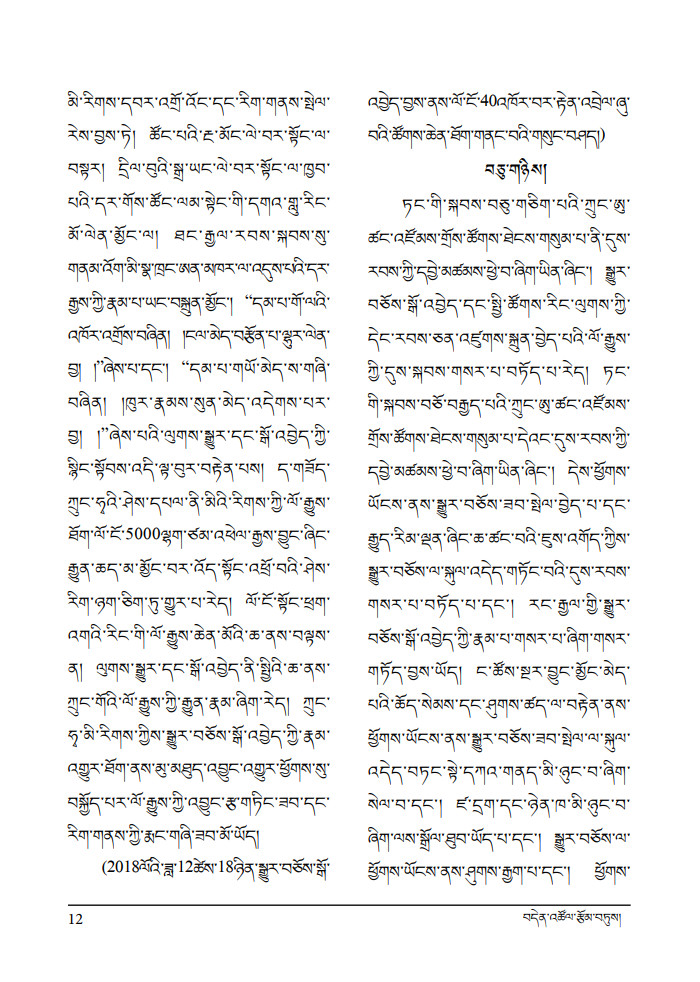 མི་རིགས་དབར་འགྲོ་འོང་དང་རིག་གནས་སྤེལ་
རེས་བྱས་ཏེ། ཚོང་པའི་རྔ་མོང་ལེ་བར་སྟོང་ལ་
བསྟར། དྲིལ་བུའི་སྒྲ་ཡང་ལེ་བར་སྟོང་ལ་ཁྱབ་
པའི་དར་གོས་ཚོང་ལམ་སྟེང་གི་དགའ་གླུ་རིང་
མོ་ལེན་མྱོང་ལ། ཐང་རྒྱལ་རབས་སྐབས་སུ་
གནམ་འོག་མི་སྣ་ཁྲང་ཨན་མཁར་ལ་འདུས་པའི་དར་
རྒྱས་ཀྱི་རྣམ་པ་ཡང་བསྐྲུན་མྱོང་། “དམ་པ་གོ་ལའི་
འཁོར་འགྲོས་བཞིན། །ངལ་མེད་བརྩོན་པ་ལྷུར་ལེན་
བྱ། །”ཞེས་པ་དང་། “དམ་པ་གཡོ་མེད་ས་གཞི་
བཞིན། །ཁུར་རྣམས་སུན་མེད་འདེགས་པར་
བྱ། །”ཞེས་པའི་ལུགས་སྒྱུར་དང་སྒོ་འབྱེད་ཀྱི་
སྙིང་སྟོབས་འདི་ལྟ་བུར་བརྟེན་པས། ད་གཟོད་
ཀྲུང་ཧྭའི་ཤེས་དཔལ་ནི་མིའི་རིགས་ཀྱི་ལོ་རྒྱུས་
ཐོག་ལོ་ངོ་5000ལྷག་ཙམ་འཕེལ་རྒྱས་བྱུང་ཞིང་
རྒྱུན་ཆད་མ་མྱོང་བར་འོད་སྟོང་འཕྲོ་བའི་ཤེས་
རིག་ཉག་ཅིག་ཏུ་གྱུར་པ་རེད། ལོ་ངོ་སྟོང་ཕྲག་
འགའི་རིང་གི་ལོ་རྒྱུས་ཆེན་མོའི་ཆ་ནས་བལྟས་
ན། ལུགས་སྒྱུར་དང་སྒོ་འབྱེད་ནི་སྤྱིའི་ཆ་ནས་
ཀྲུང་གོའི་ལོ་རྒྱུས་ཀྱི་རྒྱུན་རྣམ་ཞིག་རེད། ཀྲུང་
ཧྭ་མི་རིགས་ཀྱིས་སྒྱུར་བཅོས་སྒོ་འབྱེད་ཀྱི་རྣམ་
འགྱུར་ཐོག་ནས་མུ་མཐུད་འབྱུང་འགྱུར་ཕྱོགས་སུ་
བསྐྱོད་པར་ལོ་རྒྱུས་ཀྱི་འབྱུང་རྩ་གཏིང་ཟབ་དང་
རིག་གནས་ཀྱི་རྨང་གཞི་ཟབ་མོ་ཡོད།
(2018ལོའི་ཟླ་12ཚེས་18ཉིན་སྒྱུར་བཅོས་སྒོ་
འབྱེད་བྱས་ནས་ལོ་ངོ་40འཁོར་བར་རྟེན་འབྲེལ་ཞུ་
བའི་ཚོགས་ཆེན་ཐོག་གནང་བའི་གསུང་བཤད།)
བཅུ་གཉིས།
ཏང་གི་སྐབས་བཅུ་གཅིག་པའི་ཀྲུང་ཨུ་
ཚང་འཛོམས་གྲོས་ཚོགས་ཐེངས་གསུམ་པ་ནི་དུས་
རབས་ཀྱི་དབྱེ་མཚམས་ཕྱེ་བ་ཞིག་ཡིན་ཞིང་། སྒྱུར་
བཅོས་སྒོ་འབྱེད་དང་སྤྱི་ཚོགས་རིང་ལུགས་ཀྱི་
དེང་རབས་ཅན་འཛུགས་སྐྲུན་བྱེད་པའི་ལོ་རྒྱུས་
ཀྱི་དུས་སྐབས་གསར་པ་བཏོད་པ་རེད། ཏང་
གི་སྐབས་བཅོ་བརྒྱད་པའི་ཀྲུང་ཨུ་ཚང་འཛོམས་
གྲོས་ཚོགས་ཐེངས་གསུམ་པ་དེའང་དུས་རབས་ཀྱི་
དབྱེ་མཚམས་ཕྱེ་བ་ཞིག་ཡིན་ཞིང་། དེས་ཕྱོགས་
ཡོངས་ནས་སྒྱུར་བཅོས་ཟབ་སྤེལ་བྱེད་པ་དང་
རྒྱུད་རིམ་ལྡན་ཞིང་ཆ་ཚང་བའི་ཇུས་འགོད་ཀྱིས་
སྒྱུར་བཅོས་ལ་སྐུལ་འདེད་གཏོང་བའི་དུས་རབས་
གསར་པ་བཏོད་པ་དང་། རང་རྒྱལ་གྱི་སྒྱུར་
བཅོས་སྒོ་འབྱེད་ཀྱི་རྣམ་པ་གསར་པ་ཞིག་གསར་
གཏོད་བྱས་ཡོད། ང་ཚོས་སྔར་བྱུང་མྱོང་མེད་
པའི་ཆོད་སེམས་དང་ཤུགས་ཚད་ལ་བརྟེན་ནས་
ཕྱོགས་ཡོངས་ནས་སྒྱུར་བཅོས་ཟབ་སྤེལ་ལ་སྐུལ་
འདེད་བཏང་སྟེ་དཀའ་གནད་མི་ཉུང་བ་ཞིག་
སེལ་བ་དང་། ཛ་དྲག་དང་ཉེན་ཁ་མི་ཉུང་བ་
ཞིག་ལས་སྒྲོལ་ཐུབ་ཡོད་པ་དང་། སྒྱུར་བཅོས་ལ་
ཕྱོགས་ཡོངས་ནས་ཤུགས་རྒྱག་པ་དང་། ཕྱོགས་
12
བདེན་འཚོལ་རྩོམ་བཏུས།